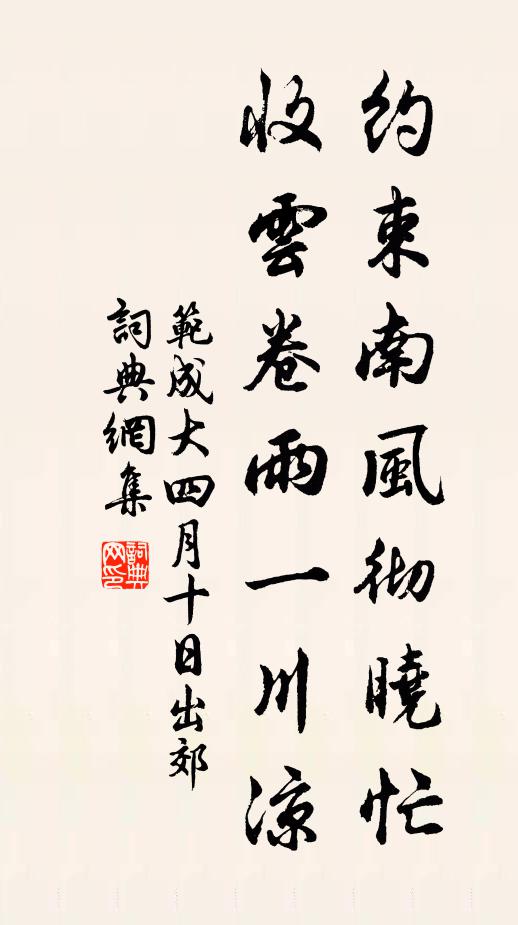 約束南風彻曉忙
收雲卷雨一川凉
範成大四月十日出郊
詞典網集
詞典网印